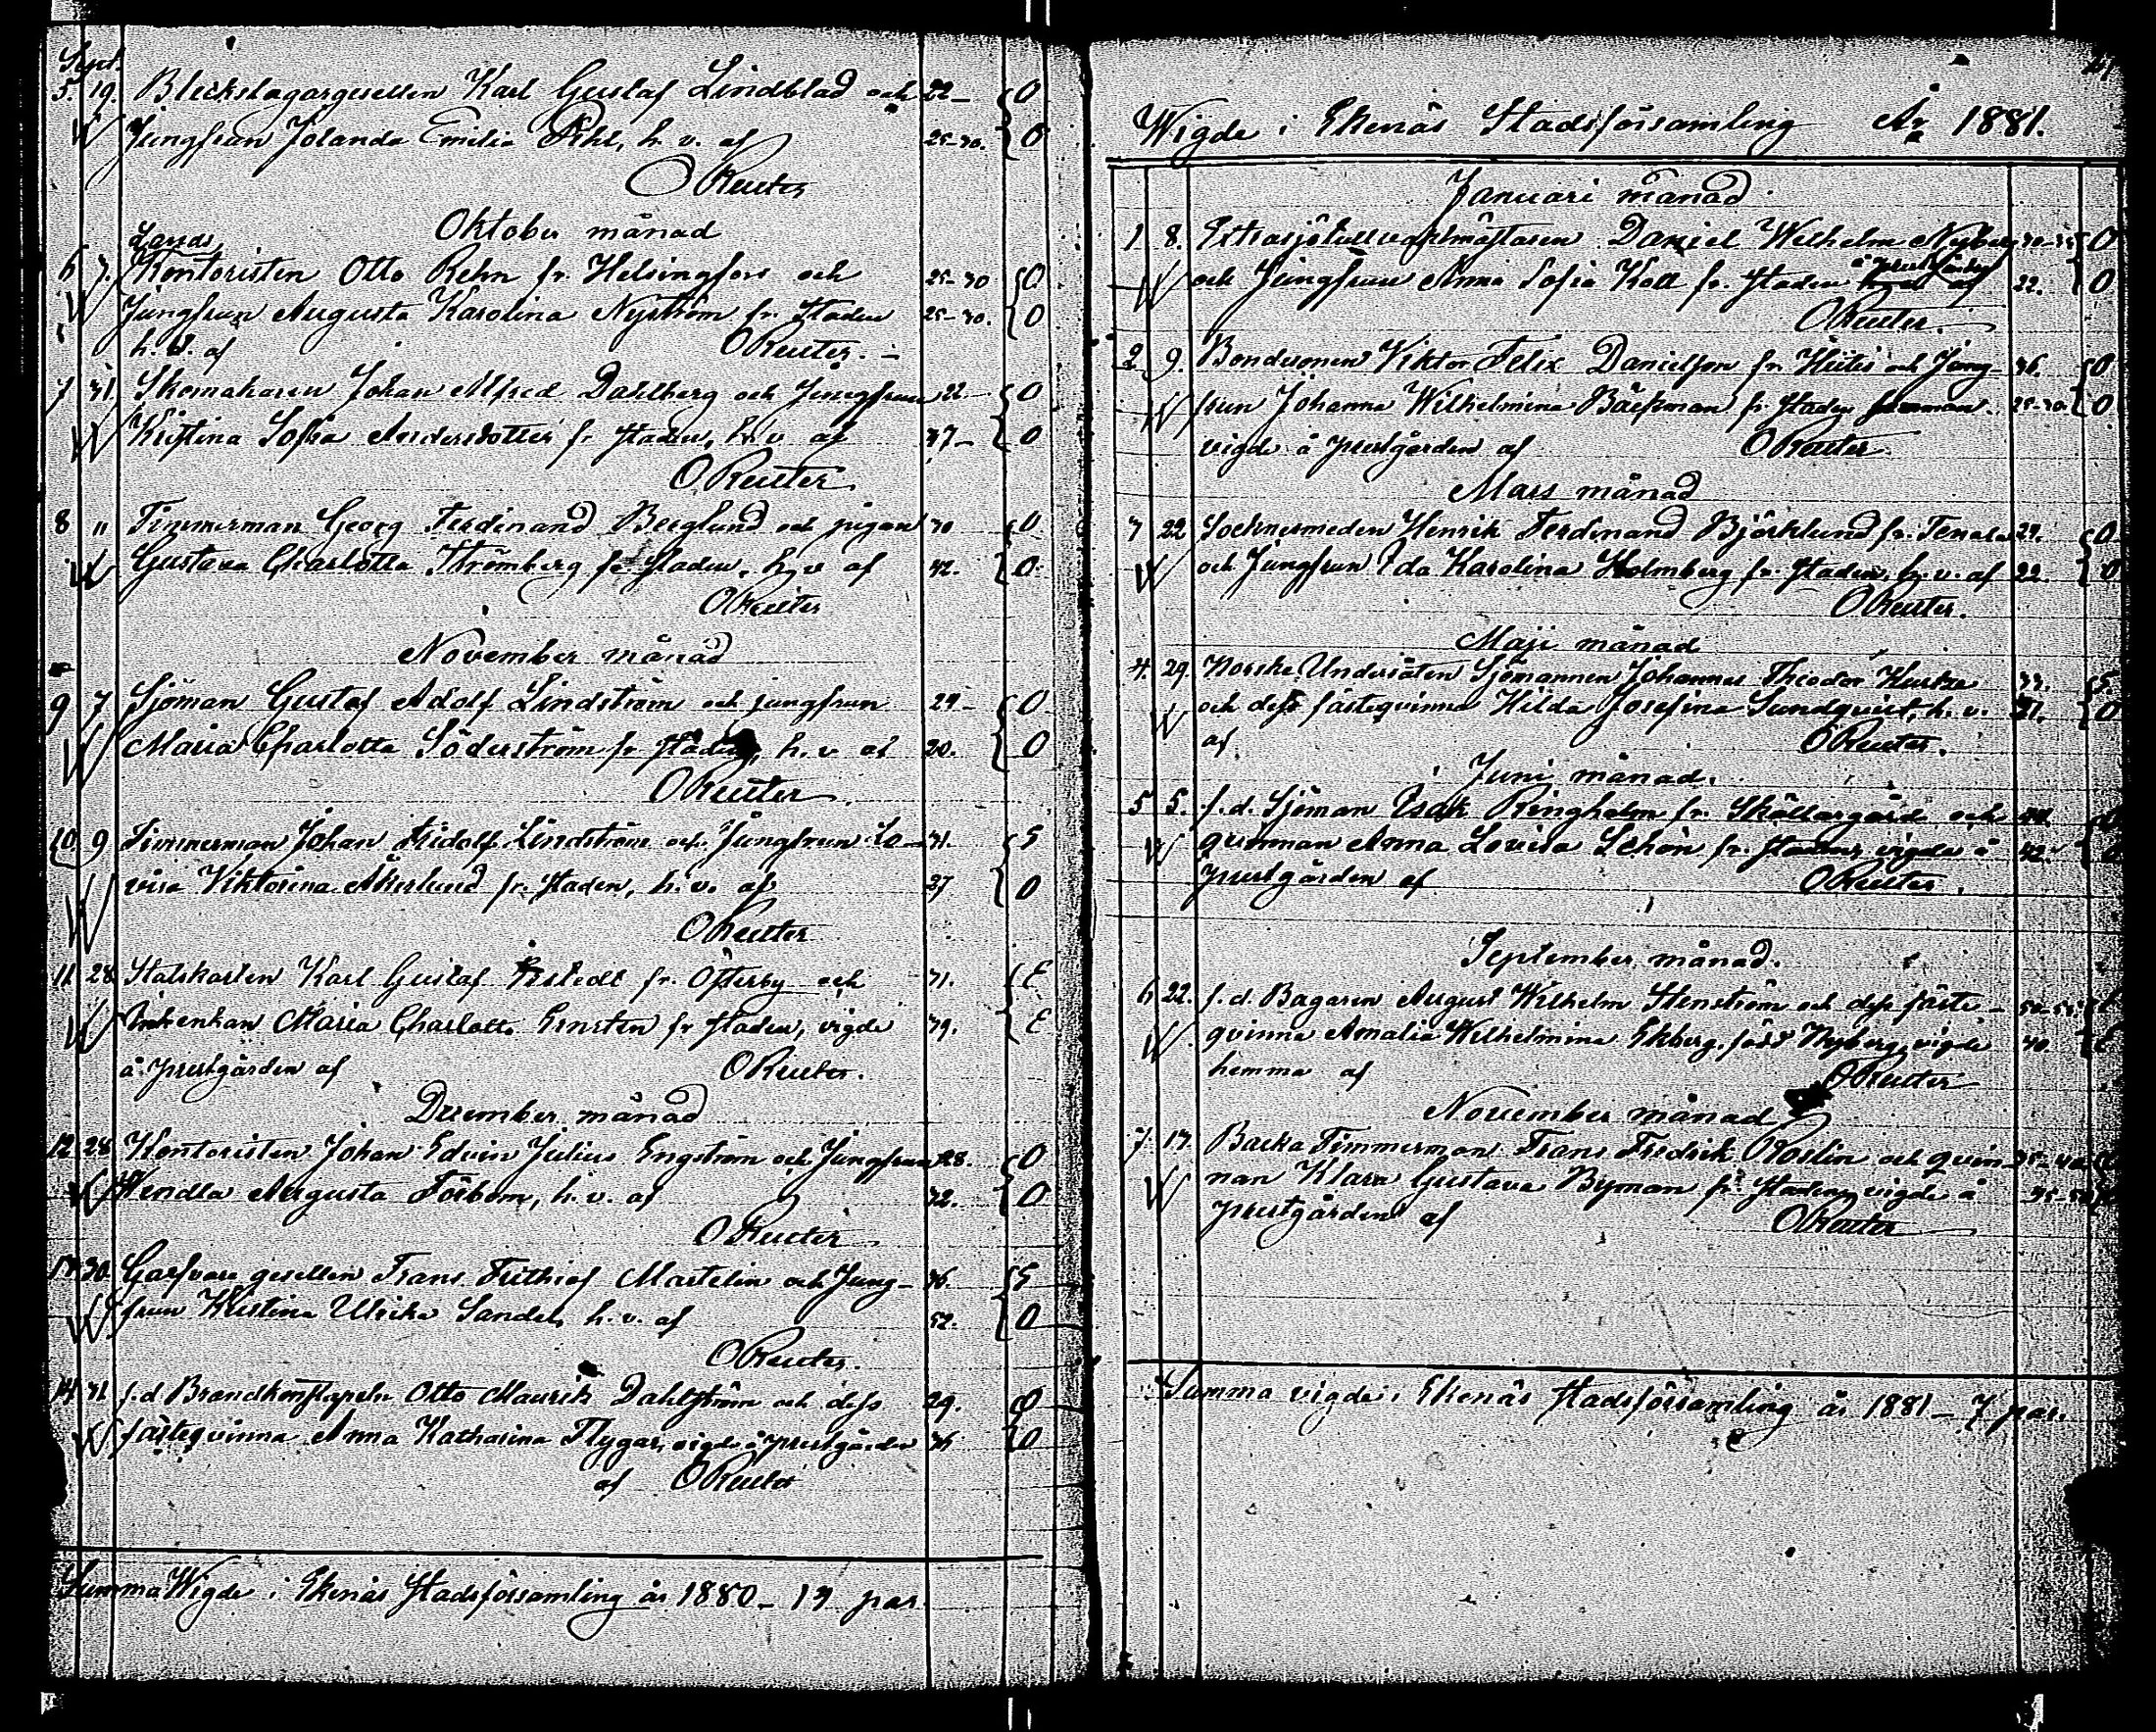 Sept.
5. 19. Bleckslagargesellen Karl Gustaf Lindblad och 22 – O
Jungfrun Jolanda Emilia h. v. af 25–30. O
O Reuter
Oktober månad
Lands
6 3. Kontoristen Otto Rehn fr. Helsingfors och 25–30 O
Jungfrun Augusta Karolina Nyström fr. staden 25–30. O
h. v. af O Reuter. –
7 31. Skomakaren Johan Alfred Dahlberg och Jungfrun 22 – O
Kristina Sofia Andersdotter fr staden, h. v af 37 – O
O Reuter
8 " Timmerman Georg Ferdinand Berglund och pigan 30 O
Gustava Charlotta Strömberg fr staden, h. v af 42. O
O Reuter
November månad
9 7 Sjöman Gustaf Adolf Lindström och jungfrun 24 – O
Maria Charlotta Söderström fr staden, h. v af 20. O
O Reuter.
10 9 Timmerman Johan Lindström och Jungfrun Lo– 31. S
visa Viktorina Åkerlund fr. staden, h. v. af 27 O
O Reuter
11 28 Statskarlen Karl Gustaf fr. Österby och 31. E
Enkan Maria Charlotta fr staden, vigde 39. E
å prestgården af O Reuter.
December månad
12 28 Kontoristen Johan Edvin Julius Engström och Jungfrun 28. O
Wendla Augusta h. v. af 32. O
O Reuter
13 30. Garfvare gesellen Frans Frithiof Martelin och Jung– 36. S
frun Kristina Ulrika Sandel, h. v. af 52. O
O Reuter.
14 31 f. d Brandkonstapeln Otto Maurits Dahlström och dess 29. O
fästeqvinna Anna Katharina Flygar, vigde å prestgården 36 O
af O Reuter
Summa Wigde i Ekenäs Stadsförsamling år 1880 – 14 par.
Wigde i Ekenäs Stadsförsamling År 1881.
Januari månad
1 8. Extrasjötullvaktmästaren Daniel Wilhelm Nyberg 30–35 O
å prestgården
och Jungfrun Anna Sofia Kott fr. staden af 22. O
O Reuter.
2 9. Bondesonen Viktor Felix Danielsson fr. Hiitis och Jung– 36. O
frun Johanna Wilhelmina Bäckman fr. staden 25–30. O
vigde å prestgården af O Reuter
Mars månad
3 22 Socknesmeden Henrik Ferdinand Björklund fr. Tenala 24. O
och Jungfrun Ida Karolina Holmberg fr. staden, h. v. af 22. O
O Reuter.
Maji månad
4. 29. Norske Undersåten Sjömannen Johannes Theodor 33. S.
och dess fästeqvinna Hilda Josefina Sundqvist, h. v. 21. O
af O Reuter.
Juni månad.
5 5. f. d. Sjöman Isak Ringholm fr. Skåldargärd och
qvinnan Anna Lovisa Schön fr. staden, vigde å 42.
prestgården af O Reuter.
September månad.
6 22. f. d. Bagaren August Wilhelm Stenström och dess fäste– 50–55
qvinna Amalia Wilhelmina Ekberg, född Nyberg, vigde 40. E
hemma af O Reuter
November månad
7. 13. Backa Timmerman Frans Fredrik Roslin och qvin– 35–40
nan Klara Gustava Byman fr. staden, vigde å 45–50
prestgården af O Reuter
Summa vigde i Ekenäs stadsförsamling år 1881 – 7 par.